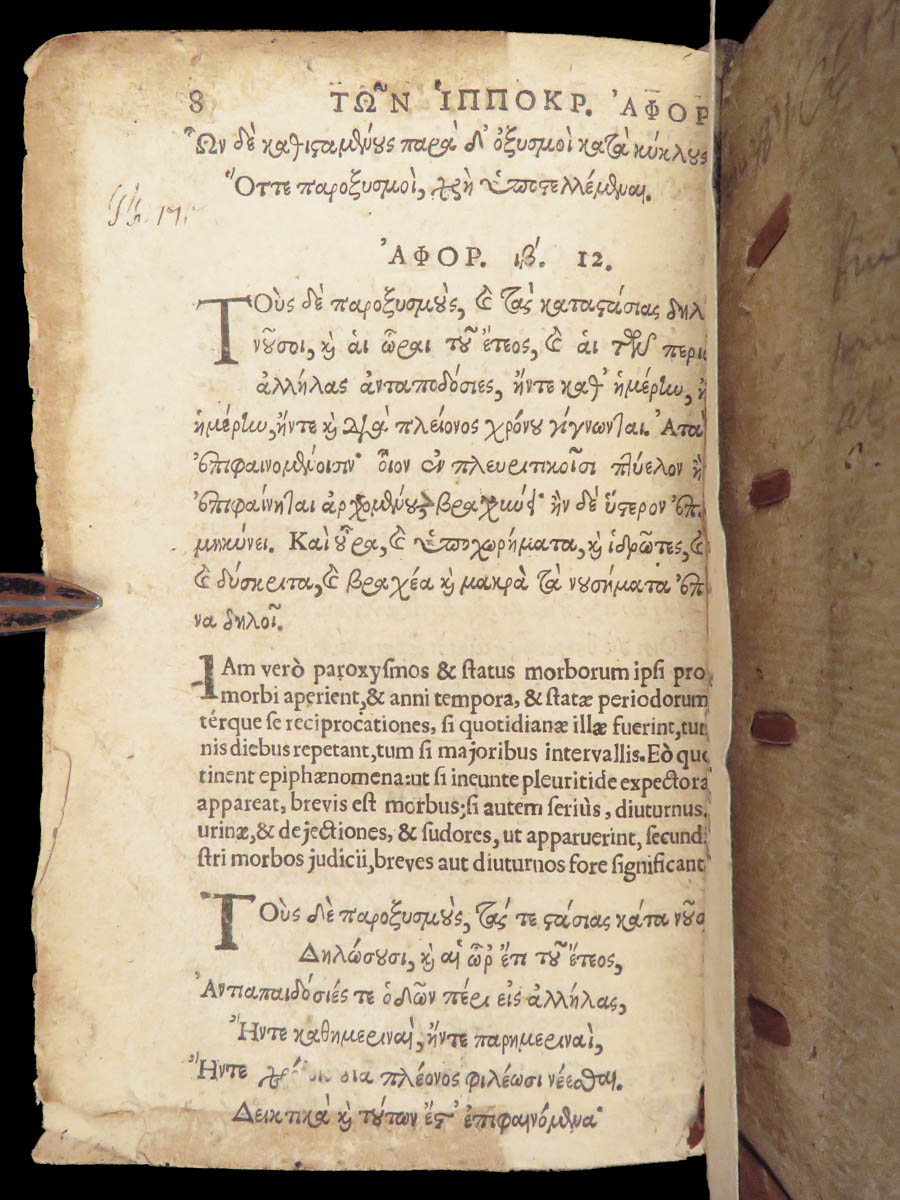 8 ΤΩ͂Ν ἹΠΠΟΚΡ. ἈΦΟΡ
Ὧν δὲ καθισαμένους παρὰ δ' ὀξυσμοὶ κατὰ κύκλους
Ὅττε παροξυσμοὶ, χρὴ ὑποστελλέμεναι.
ἈΦΟΡ. ιβ. 12.
ΤΟὺς δὲ παροξυσμοὺς, καὶ τὰς καταστάσιας δηλ
νοῦσοι, καὶ αἱ ὧραι τοῦ ἔτεος, καὶ αἱ τῶν περιο
ἀλλήλας ἀνταποδόσιες, ἤντε καθ' ἡμέρην, ἤ
ἡμέρην, ἤντε καὶ διὰ πλείονος χρόνου γίγνωνται. Ἀτὰ
ἐπιφαινομένοισιν· οἷον ἐν πλευριτικοῖσι πτύελον ἢ
ἐπιφαίνηται ἀρχομένου, βραχύνει· ἢν δὲ ὕστερον ἐπι
μηκύνει. Καὶ οὖρα, καὶ ὑποχωρήματα, καὶ ἱδρῶτες, καὶ
καὶ δύσκριτα, καὶ βραχέα καὶ μακρὰ τὰ νουσήματα ἐπι
να δηλοῖ.
IAm verò paroxysmos & status morborum ipsi pro
morbi aperient, & anni tempora, & statæ periodorum
térque se reciprocationes, si quotidianæ illæ fuerint, tum
nis diebus repetant, tum si majoribus intervallis. Eò que
tinent epiphænomena: ut si ineunte pleuritide expectora
appareat, brevis est morbus; si autem seriùs, diuturnus.
urinæ, & dejectiones, & sudores, ut apparuerint, secund
stri morbos judicii, breves aut diuturnos fore significant
ΤΟὺς δὲ παροξυσμοὺς, τάς τε στάσιας κάτα νούσ
Δηλώσουσι, καὶ αἱ ὧρ' ἔπι τοῦ ἔτεος,
Ἀνταπαιδόσιές τε ὁδῶν πέρι εἰς ἀλλήλας,
Ἤντε καθημεριναὶ, ἤντε παρημεριναὶ,
Ἤντε δια πλέονος φιλέωσι νέεσθαι.
Δεικτικὰ καὶ τούτων ἔστ' ἐπιφαινόμενα·